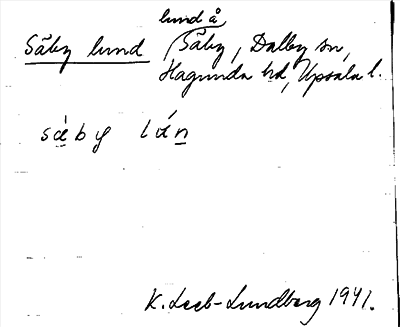 lund å
Säby lund Säby, Dalby sn,
Hagunda hd, Upsala l.
sà̱by lán̲
K. Leeb-Lundberg 1941.